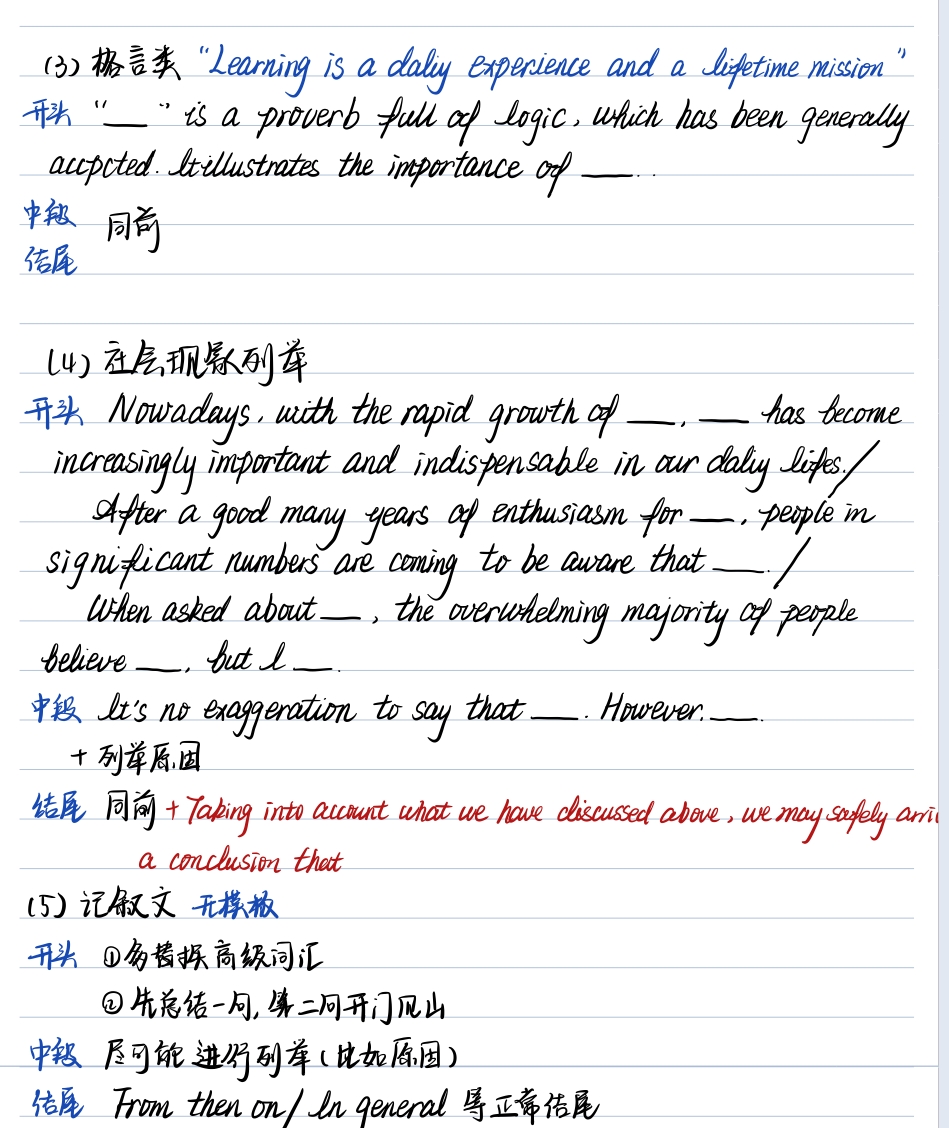 (3) 格言类 "Learning is a daliy experience and a lifetime mission"
开头 "__" is a proverb full of logic, which has been generally
accpcted. It illustrates the importance of __..
中段 同前
结尾
(4) 社会现象列举
开头 Nowadays, with the rapid growth of __, __ has become
increasingly important and indispensable in our daliy lifes./
After a good many years of enthusiasm for __, people in
significant numbers are coming to be aware that __./
When asked about __, the overwhelming majority of people
believe __, but I __.
中段 It's no exaggeration to say that __. However, __.
+ 列举原因
结尾 同前 + Taking into account what we have discussed above, we may safely arri
a conclusion that
(5) 记叙文 无模板
开头 ①多替换高级词汇
② 先总结一句, 第二句开门见山
中段 尽可能进行列举(比如原因)
结尾 From then on/ In general 等正常结尾